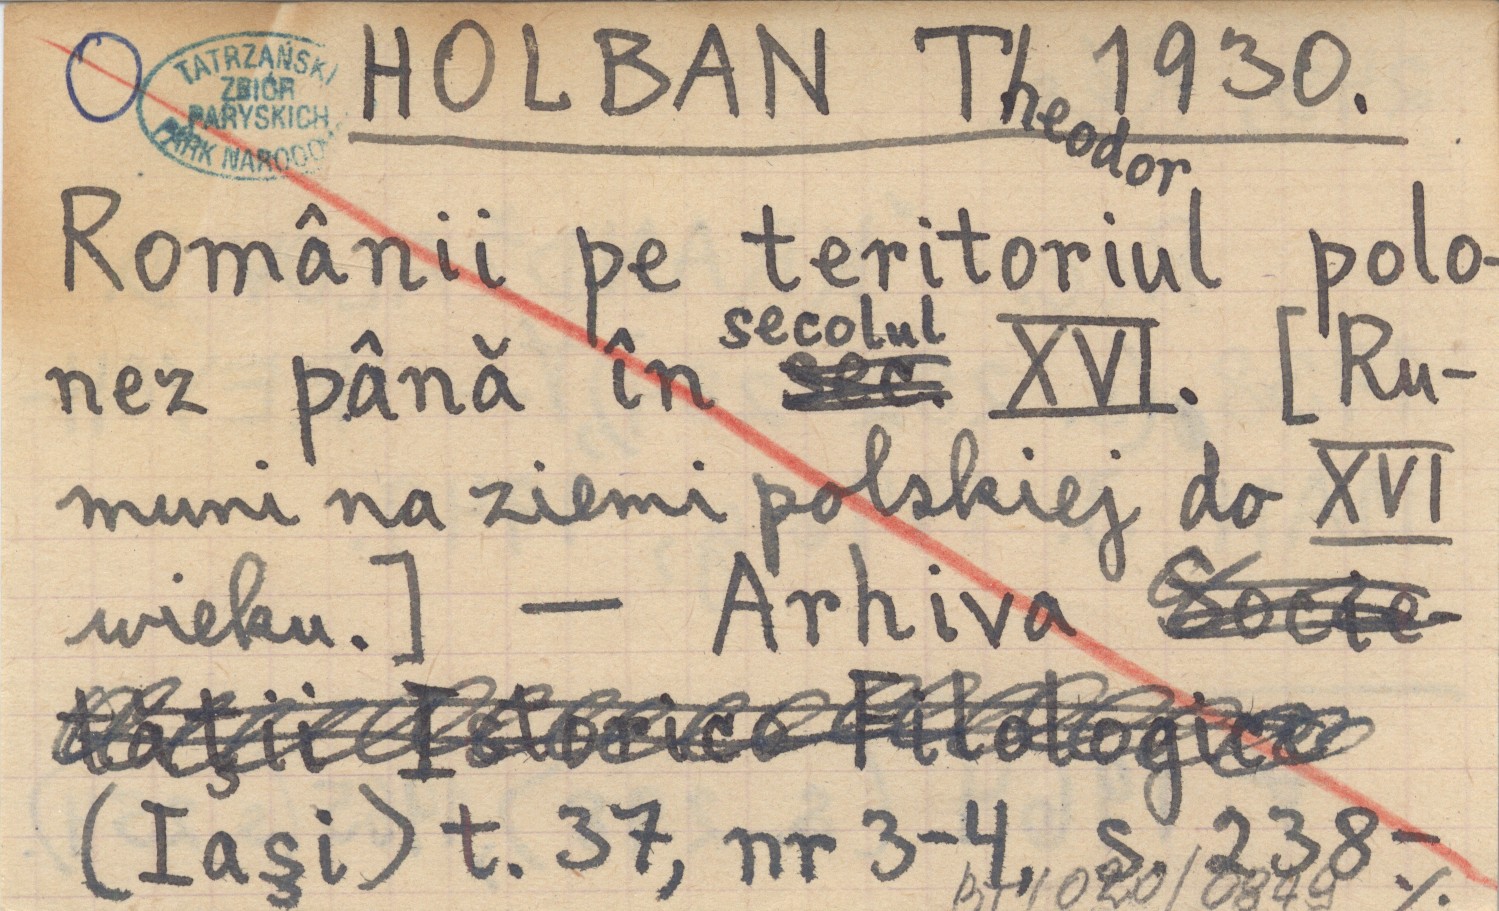 TATRZAŃSKI
ZBIÓR
PARYSKICH
PARK NARODO
HOLBAN Theodor 1930.
Românii pe teritoriul polo-
nez până în secolul XVI. [Ru-
muni na ziemi polskiej do XVI
wieku.] — Arhiva Socie-
tăţii Istorico Filologice
(Iaşi) t. 37, nr 3-4, s. 238-